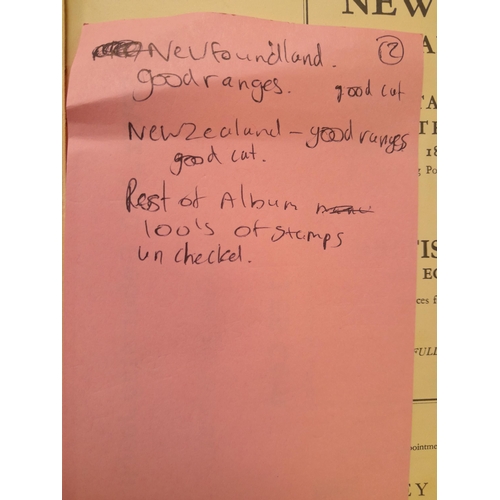 Newfoundland. (2)
good ranges. good cat
New Zealand - good ranges
good cat.
Rest of Album
100's of stamps
un checked.
NEW
A
TA
TE
18
g Po
TIS
EC
ces f
FULL
pointme
EY